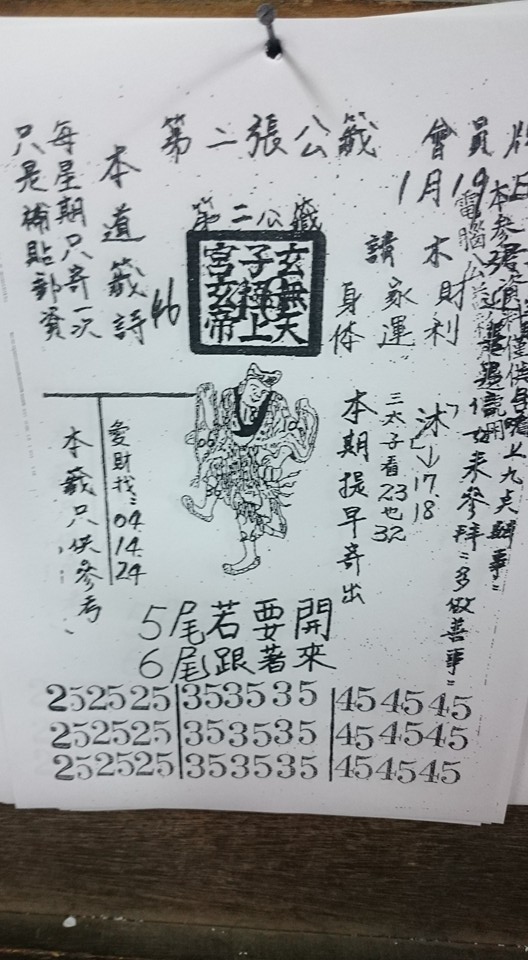 第二張公籤
會員
1月19日
第二公籤
玄無天
子極上
宮玄帝
46
請
木財利
家運
身体
本道籤詩
每星期只寄一次
只是補貼郵資
沐→17.18
三太子看23也32
本期提早寄出
多做善事
愛財找:04.14.24
本籤只供參考
5尾若要開
6尾跟著來
252525 353535 454545
252525 353535 454545
252525 353535 454545